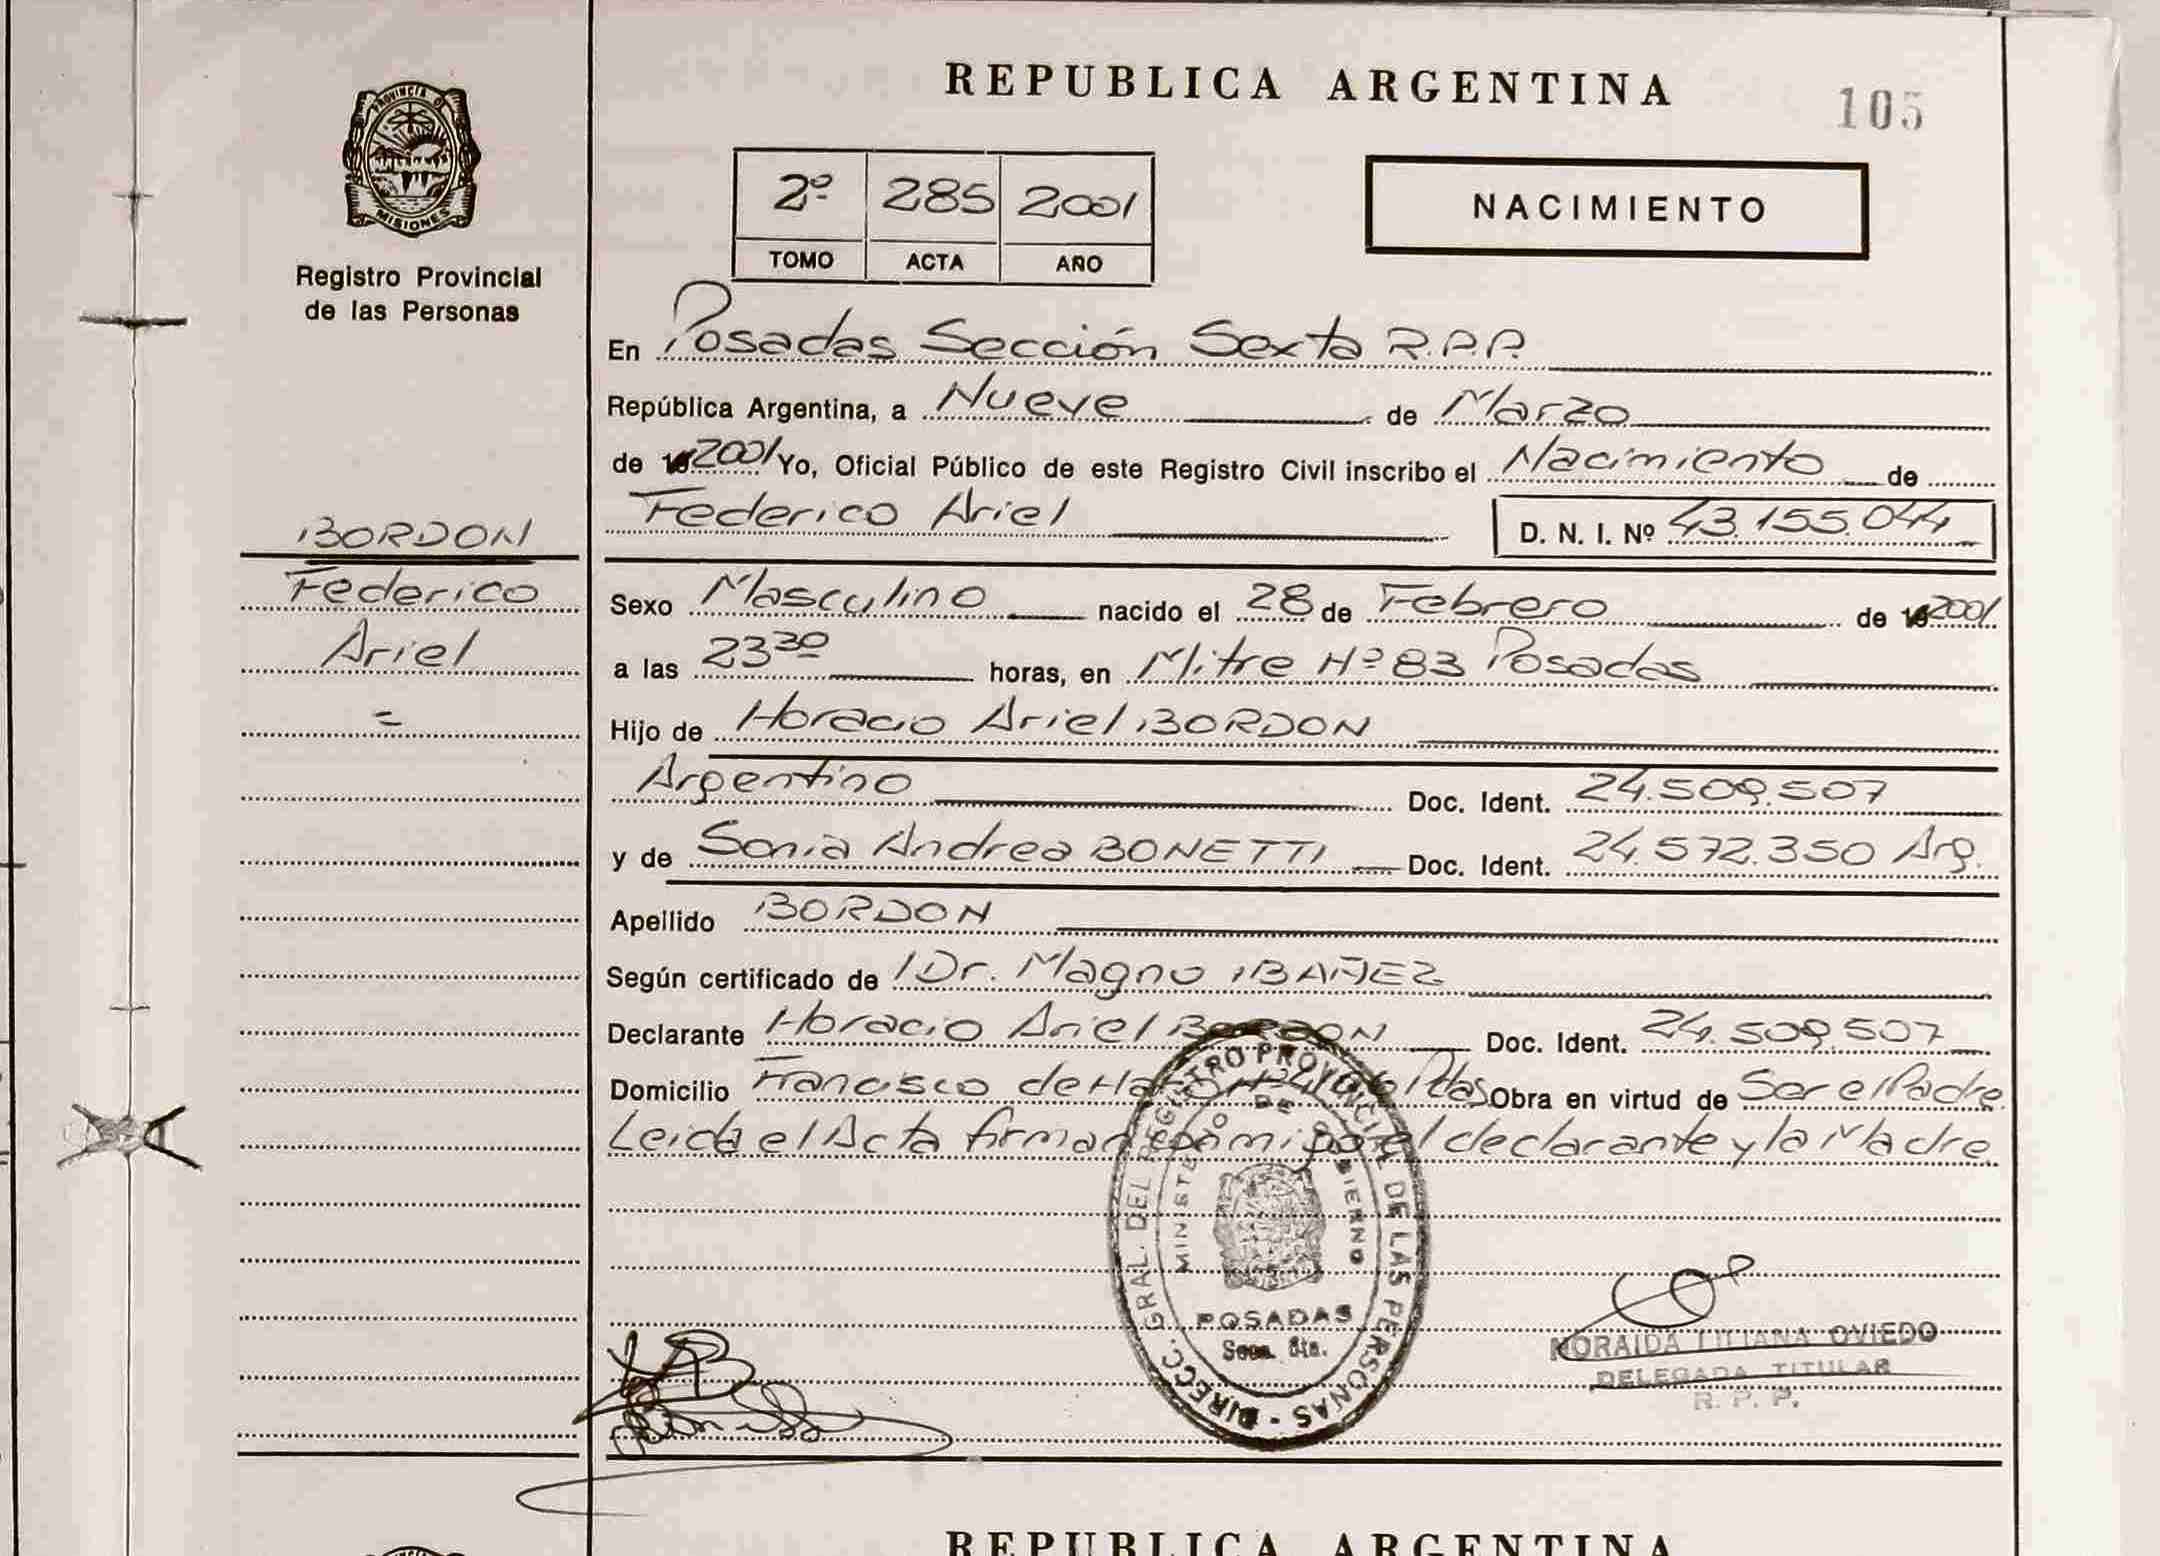 REPUBLICA ARGENTINA
105
PROVINCIA D
MISIONES
Registro Provincial
de las Personas
2º 285 2001
TOMO ACTA AÑO
NACIMIENTO
En Posadas Sección Sexta R.P.P.
República Argentina, a Nueve de Marzo
de 2001 Yo, Oficial Público de este Registro Civil inscribo el Nacimiento de
Federico Ariel D. N. I. Nº 43.155.044
BORDON
Federico
Ariel
=
Sexo Masculino nacido el 28 de Febrero de 2001
a las 23 30 horas, en Mitre Nº 83 Posadas
Hijo de Horacio Ariel BORDON
Argentino Doc. Ident. 24.509.507
y de Sonia Andrea BONETTI Doc. Ident. 24.572.350 Arg.
Apellido BORDON
Según certificado de Dr. Magno IBAÑEZ
Declarante Horacio Ariel BORDON Doc. Ident. 24.509.507
Domicilio Francisco de Pdas Obra en virtud de Ser el Padre
Leida el Acta firman conmigo el declarante y la Madre
DIRECC. GRAL. DEL REGISTRO PROVINCIAL DE LAS PERSONAS -
MINISTERIO DE GOBIERNO
POSADAS
Secc. 6ta.
NORAIDA LILIANA OVIEDO
DELEGADA TITULAR
R. P. P.
REPUBLICA ARGENTINA